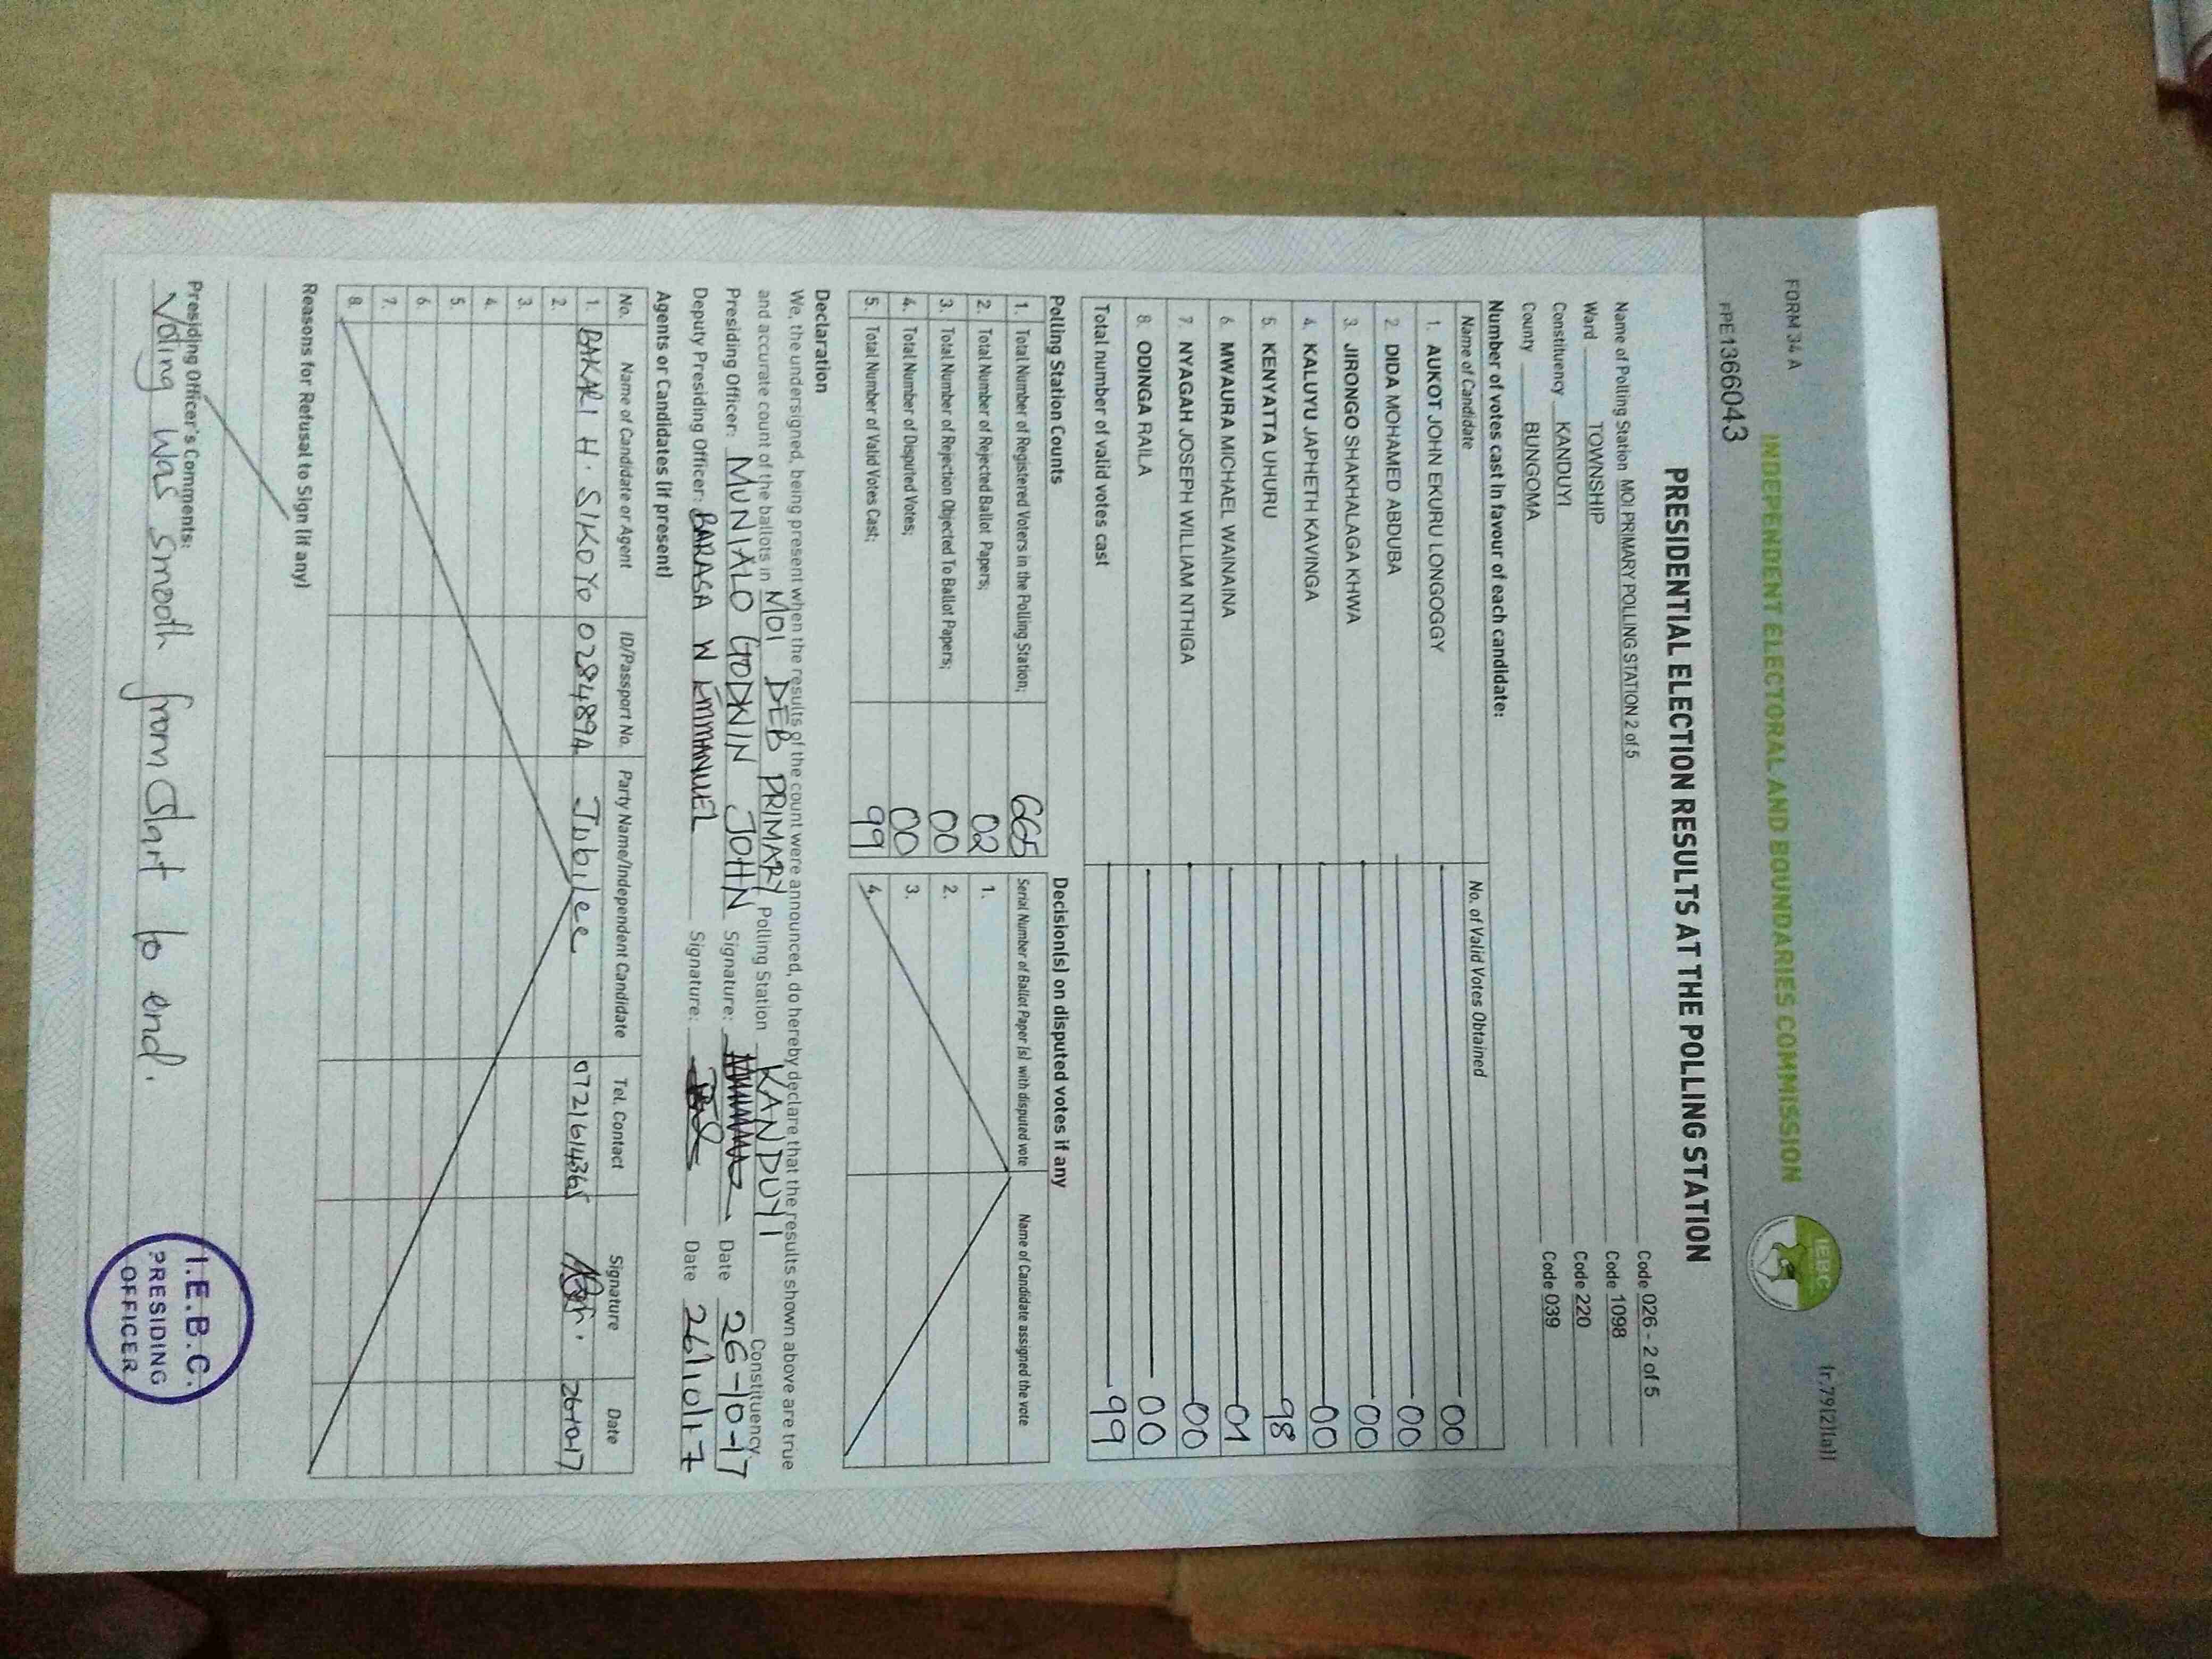 FORM 34 A
(r.79(2)(a))
INDEPENDENT ELECTORAL AND BOUNDARIES COMMISSION
IEBC
FPE1366043
PRESIDENTIAL ELECTION RESULTS AT THE POLLING STATION
Name of Polling Station MOI PRIMARY POLLING STATION 2 of 5 Code 026 - 2 of 5
Ward TOWNSHIP Code 1098
Constituency KANDUYI Code 220
County BUNGOMA Code 039
Number of votes cast in favour of each candidate:
Name of Candidate No. of Valid Votes Obtained
1. AUKOT JOHN EKURU LONGOGGY 00
2. DIDA MOHAMED ABDUBA 00
3. JIRONGO SHAKHALAGA KHWA 00
4. KALUYU JAPHETH KAVINGA 00
5. KENYATTA UHURU 98
6. MWAURA MICHAEL WAINAINA 01
7. NYAGAH JOSEPH WILLIAM NTHIGA 00
8. ODINGA RAILA 00
Total number of valid votes cast 99
Polling Station Counts Decision(s) on disputed votes if any
1. Total Number of Registered Voters in the Polling Station; 665 Serial Number of Ballot Paper (s) with disputed vote Name of Candidate assigned the vote
2. Total Number of Rejected Ballot Papers; 02 1.
3. Total Number of Rejection Objected To Ballot Papers; 00 2.
4. Total Number of Disputed Votes; 00 3.
5. Total Number of Valid Votes Cast; 99 4.
Declaration
We, the undersigned, being present when the results of the count were announced, do hereby declare that the results shown above are true
and accurate count of the ballots in MOI DEB PRIMARY Polling Station KANDUYI Constituency
Presiding Officer: MUNIALO GODWIN JOHN Signature: Date 26-10-17
Deputy Presiding Officer: BARASA W EMMANUEL Signature: Date 26/10/17
Agents or Candidates (if present)
No. Name of Candidate or Agent ID/Passport No. Party Name/Independent Candidate Tel. Contact Signature Date
1. BAKARI H. SIKOYO Jubilee 0721614365 26-10-17
2.
3.
4.
5.
6.
7.
8.
Reasons for Refusal to Sign (if any)
Presiding Officer's Comments:
Voting was smooth from start to end.
I.E.B.C.
PRESIDING
OFFICER